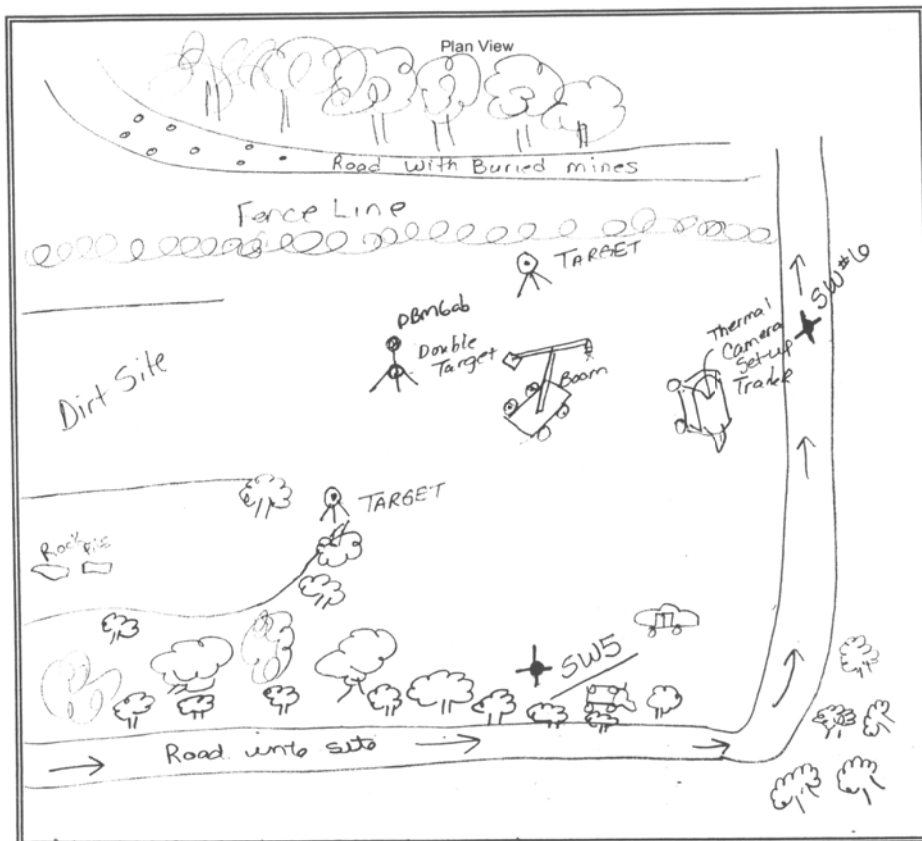 Plan View
Road with Buried mines
Fence Line
TARGET
SW#6
DBM6ab
Double
Target
Thermal
Camera
Set-up
Boom
Dirt Site
TARGET
Rock
SW5
Road into site